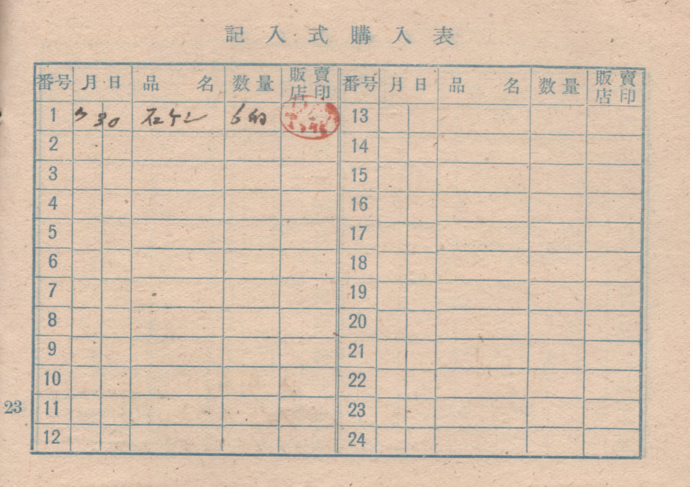 記入式購入表
番号 月 日 品 名 数量 販賣店印 番号 月 日 品 名 数量 販賣店印
1 30 石ケン 6 13
2 14
3 15
4 16
5 17
6 18
7 19
8 20
9 21
10 22
11 23
12 24
23